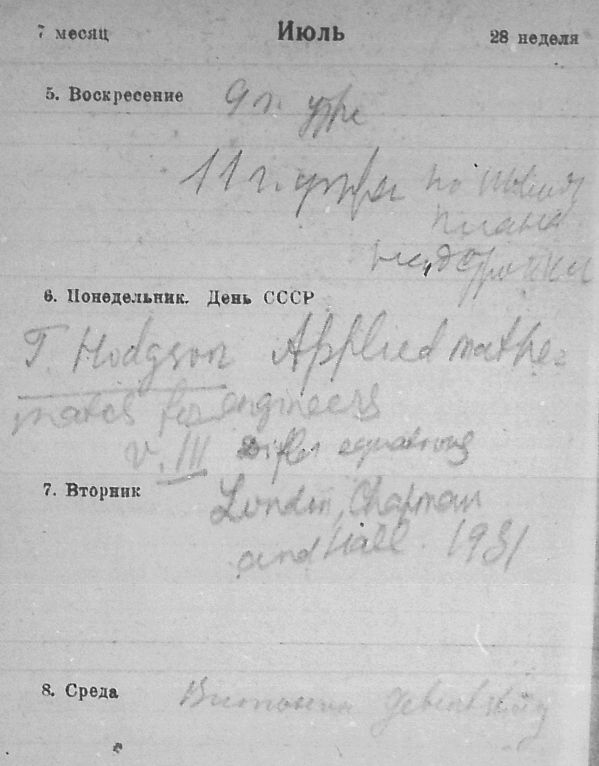 7 месяц Июль 28 неделя
5. Воскресение 9 г. утра
11 г. утра по
плана
надстройки
6. Понедельник. День СССР
T. Hodgson Applied mathe-
matcs for engineers
V. III Differ equations
7. Вторник London, Chapman
and Hall. 1931
8. Среда